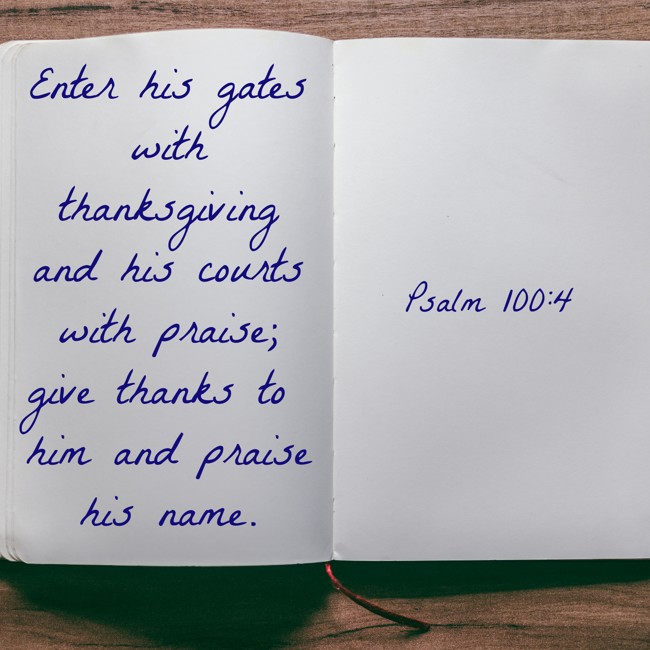 Enter his gates
with
thanksgiving
and his courts
with praise;
give thanks to
him and praise
his name.
Psalm 100:4